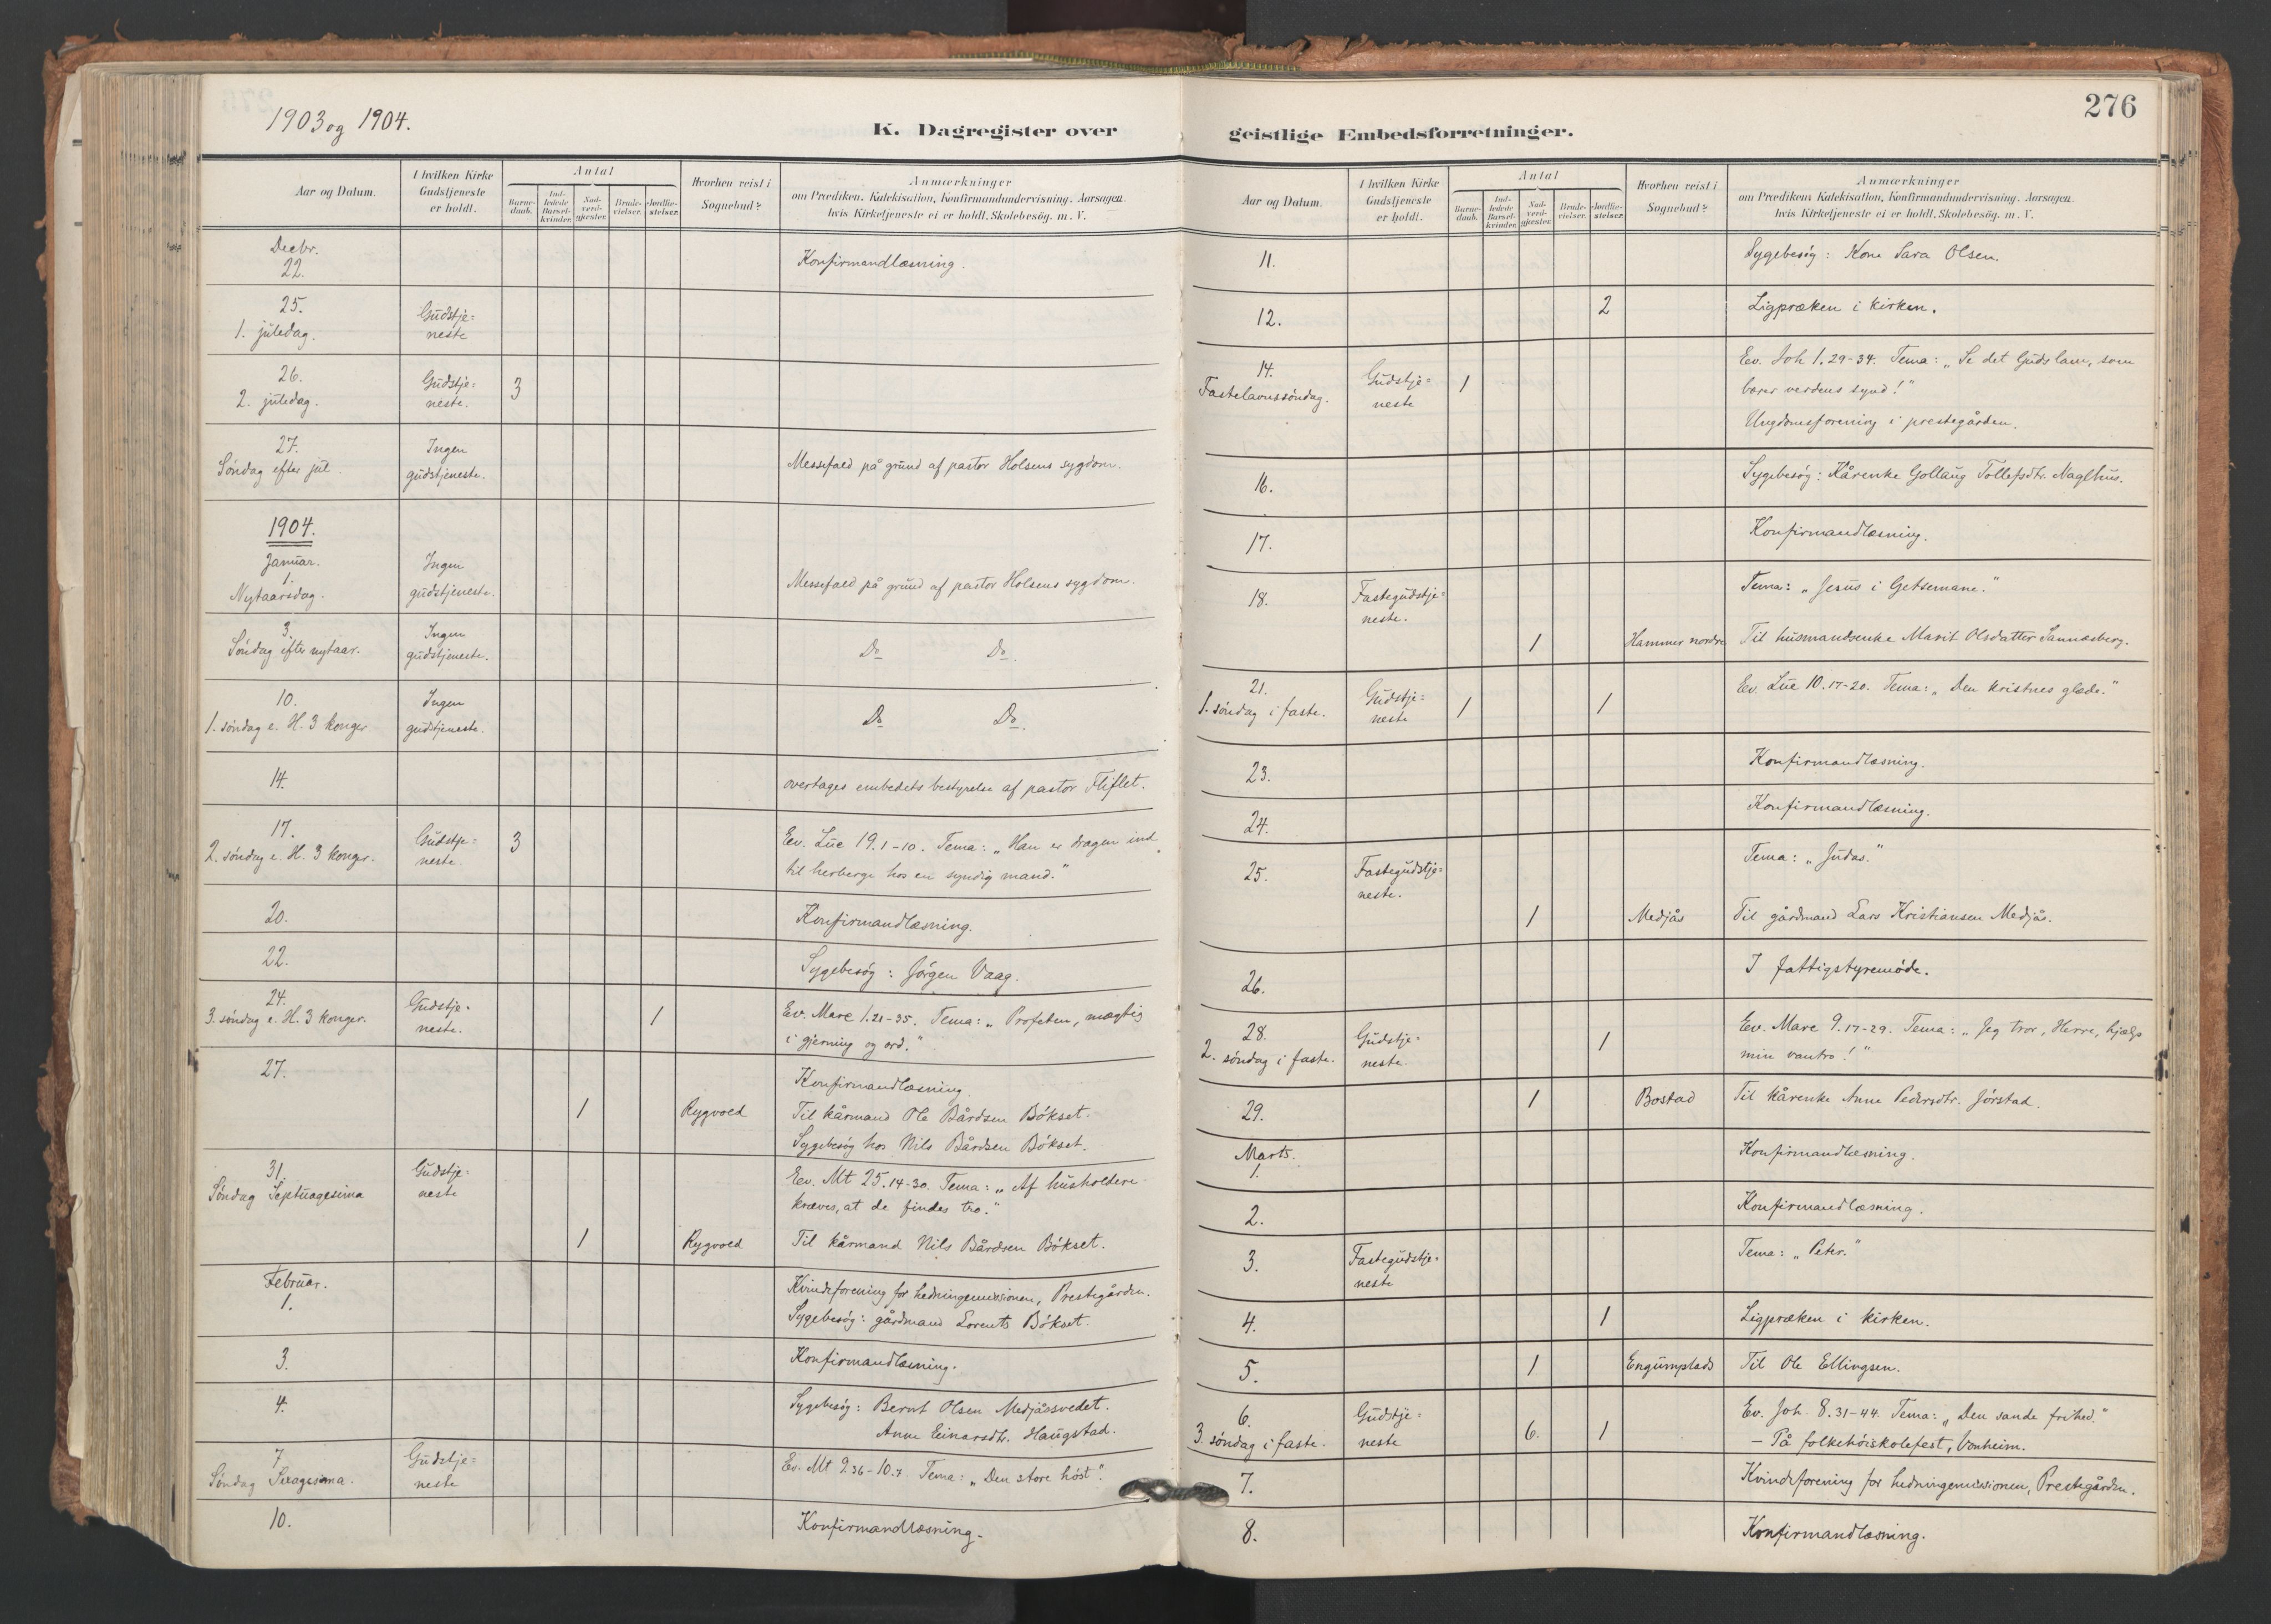 1903 og 1904.
K. Dagregister over
Aar og Datum.
I hvilken Kirke Gudstjeneste er holdt.
Antal
Barnedaab.
Indledede Barselkvinder.
Nadverdgjester.
Brudevielser.
Jordfæstelser.
Hvorhen reist i Sognebud?
Anmærkninger
om Prædiken, Katekisation, Konfirmandundervisning, Aarsagen
hvis Kirketjeneste ei er holdt, Skolebesøg, m. V.
Decbr.
22. Konfirmandlæsning.
25. Gudstje=
1. juledag. neste
26. Gudstje=
2. juledag. neste. 3
27. Ingen
Søndag efter jul gudstjeneste. Messefald på grund af pastor Holsens sygdom.
1904.
Januar.
1. Ingen
Nytaarsdag. gudstjeneste. Messefald på grund af pastor Holsens sygdom.
3. Ingen
Søndag efter nytaar. gudstjeneste. Do Do.
10. Ingen
1. søndag e. H. 3 konger gudstjeneste. Do Do.
14. overtages embedets bestyrelse af pastor Fliflet.
17. Gudstje= 3 Ev. Luc 19.1-10. Tema: „Han er dragen ind
2. søndag e. H. 3 konger. neste. til herberge hos en syndig mand."
20. Konfirmandlæsning.
22. Sygebesøg: Jørgen Vaag.
24. Gudstje= 1 Ev. Marc 1.21-35. Tema: „Profeten, mægtig
3. søndag e. H. 3 konger. neste. i gjerning og ord."
27. Konfirmandlæsning
1 Rygvold Til kårmand Ole Bårdsen Bökset.
Sygebesøg hos Nils Bårdsen Bökset.
31. Gudstje= Ev. Mt 25.14-30. Tema: „Af husholdere
Søndag Septuagesima neste kræves, at de findes tro."
1 Rygvold Til kårmand Nils Bårdsen Bökset.
Februar.
1. Kvindeforening for hedningemissionen, Prestegården.
Sygebesøg: gårdmand Lorents Bökset.
3. Konfirmandlæsning.
4. Sygebesøg: Bernt Olsen Medjåsvedet.
Anne Einarsdtr. Haugstad.
7 Gudstje=
Søndag Sexagesima. neste Ev. Mt 9.36-10.7. Tema: „Den store høst".
10. Konfirmandlæsning.
276
geistlige Embedsforretninger.
Aar og Datum.
I hvilken Kirke Gudstjeneste er holdt.
Antal
Barnedaab.
Indledede Barselkvinder.
Nadverdgjester.
Brudevielser.
Jordfæstelser.
Hvorhen reist i Sognebud?
Anmærkninger
om Prædiken, Katekisation, Konfirmandundervisning, Aarsagen
hvis Kirketjeneste ei er holdt, Skolebesøg, m. V.
11. Sygebesøg: Kone Sara Olsen.
12. 2 Ligpræken i kirken.
14. Gudstje= 1 Ev. Joh 1.29-34. Tema: „Se det Guds lam, som
Fastelavnssöndag. neste bærer verdens synd!"
Ungdomsforening i prestegården.
16. Sygebesøg: Kårenke Gollaug Tollefsdtr. Naglhus.
17. Konfirmandlæsning.
18. Fastegudstje= Tema: „Jesus i Getsemane."
neste.
1 Hammer nordre Til husmandsenke Marit Olsdatter Sannesberg.
21. Gudstje= Ev. Luc 10.17-20. Tema: „Den kristnes glæde."
1. søndag i faste. neste 1 1
23. Konfirmandlæsning.
24. Konfirmandlæsning.
25. Fastegudstje= Tema: „Judas."
neste.
1 Medjås Til gårdmand Lars Kristiansen Medjås.
26. I fattigstyremöde.
28. Gudstje= 1 Ev. Marc 9.17-29. Tema: „Jeg tror, Herre, hjælp
2. søndag i faste. neste. min vantro!"
29. 1 Bostad Til kårenke Anne Pedersdtr. Jörstad.
Marts.
1. Konfirmandlæsning.
2. Konfirmandlæsning.
3. Fastegudstje= Tema: „Peter."
neste
4. 1 Ligpræken i kirken.
5. 1 Engumplads Til Ole Ellingsen.
6. Gudstje= Ev. Joh. 8.31-44. Tema: „Den sande frihed."
3. søndag i faste. neste 6. 1 - På folkehöiskolefest, Vonheim.
7. Kvindeforening for hedningemissionen, Prestegården.
8. Konfirmandlæsning.